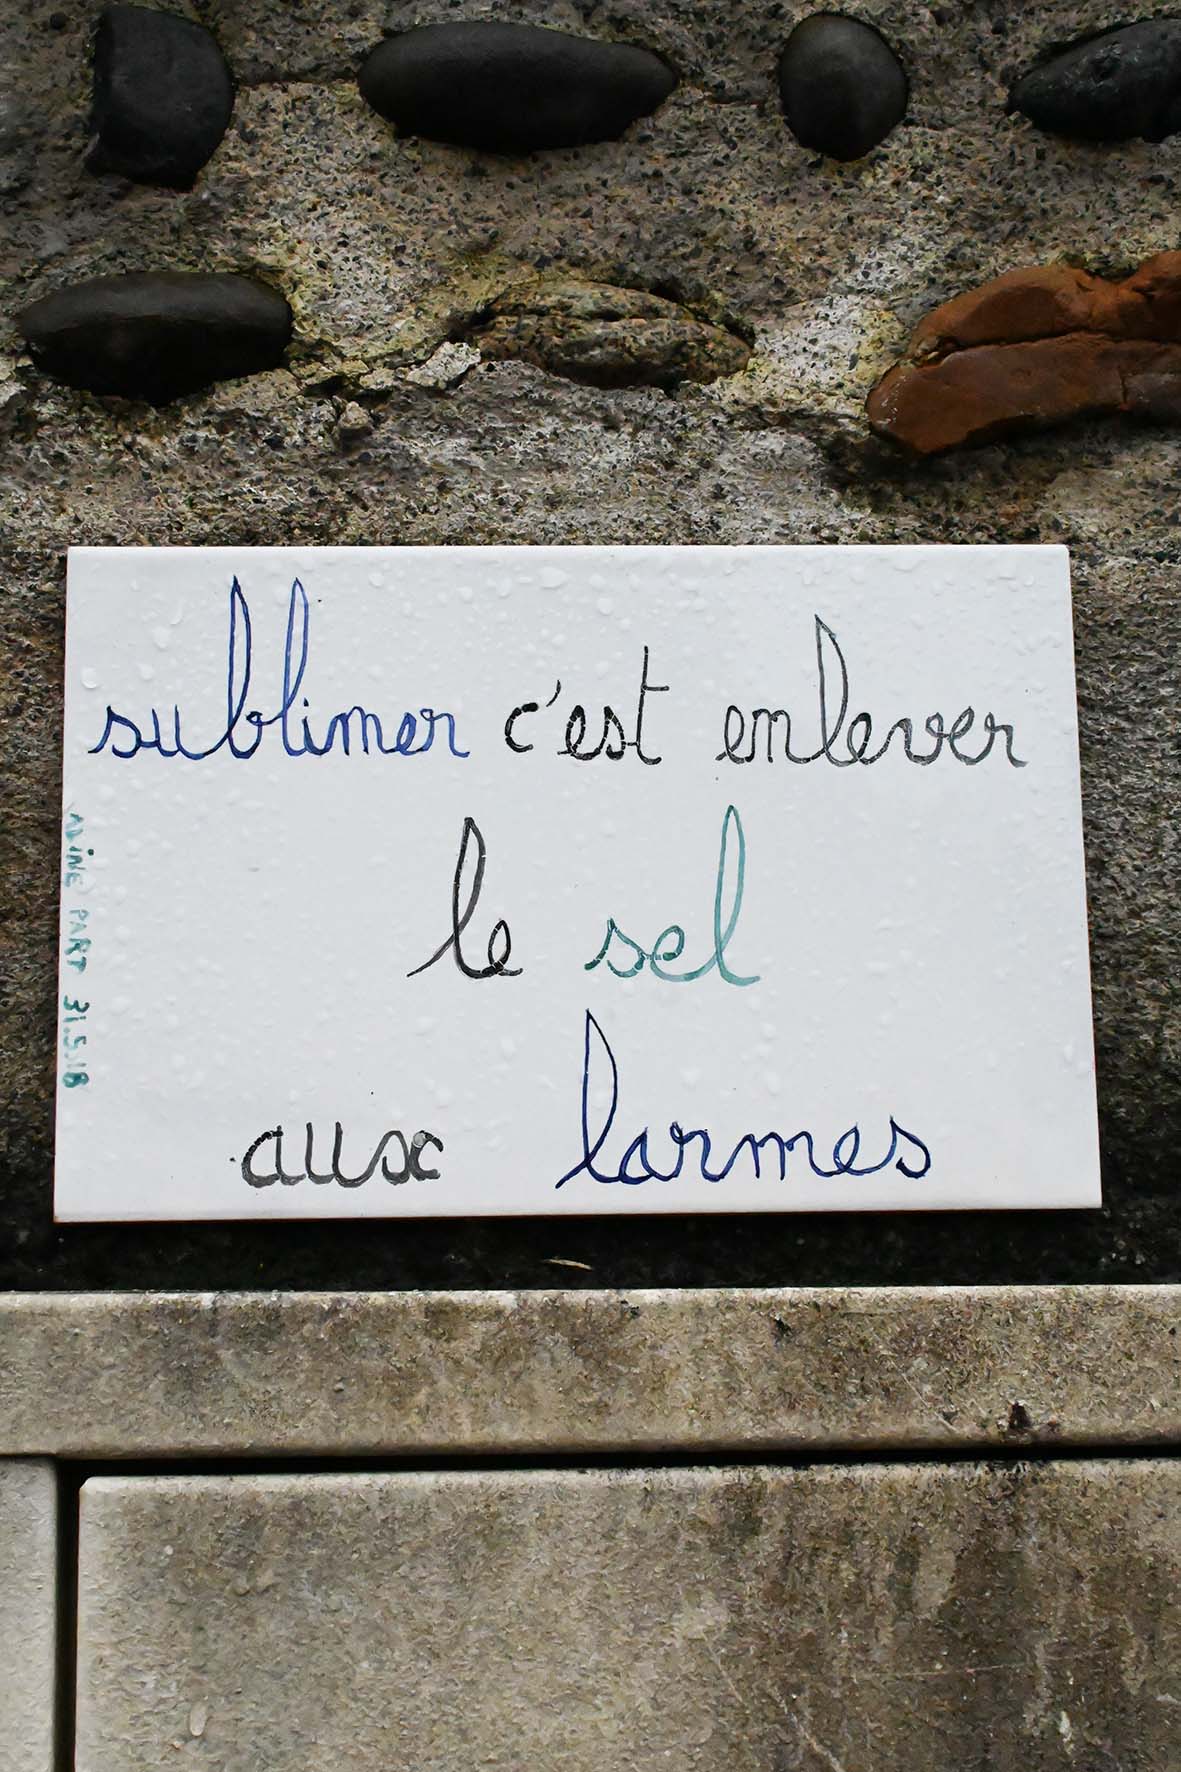 sublimer c'est enlever
le sel
aux larmes
ALINE PART 31.5.18